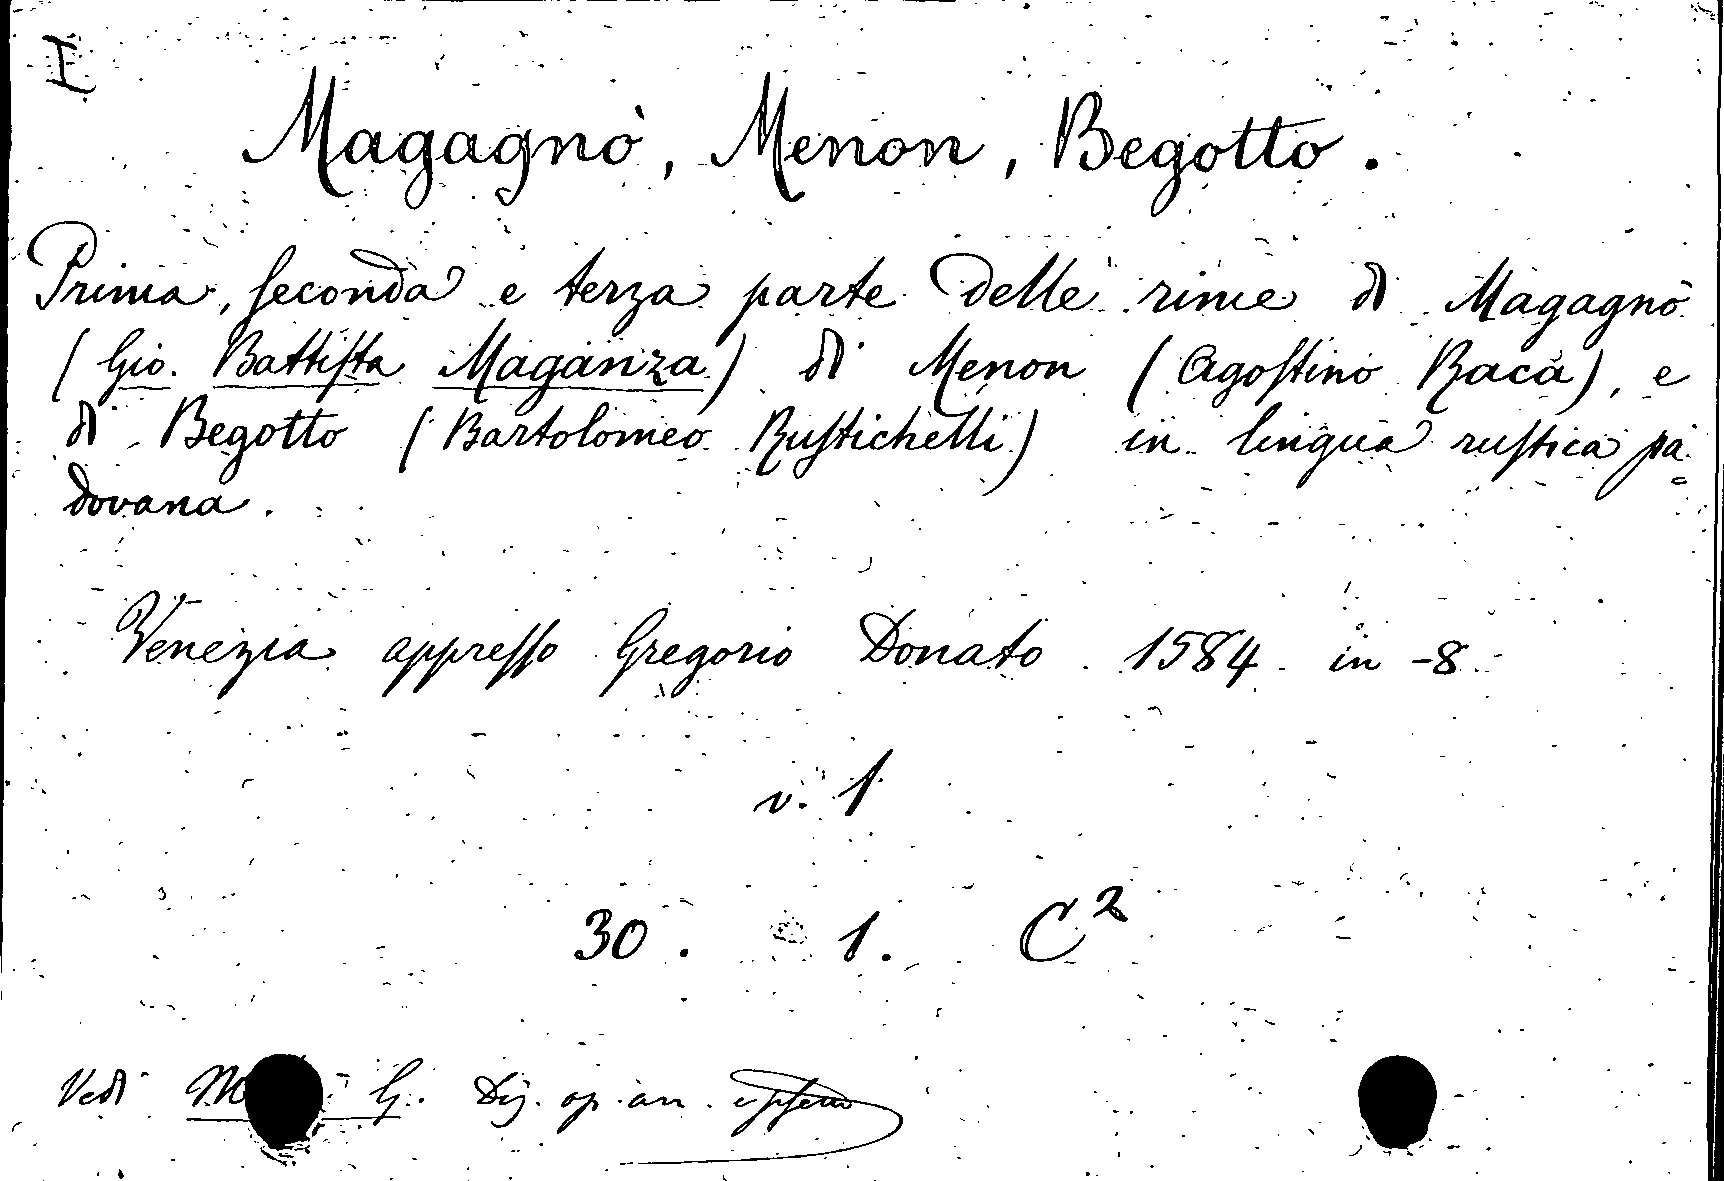 I
Magagnò, Menon, Begotto.
Prima, seconda e terza parte delle rime di Magagnò
(Gio. Battista Maganza) di Menon (Agostino Racà), e
di Begotto (Bartolomeo Rustichelli) in lingua rustica pa=
dovana.
Venezia appresso Gregorio Donato 1584 in -8
v. 1
30. 1. C²
Vedi G. Diz. op. an.